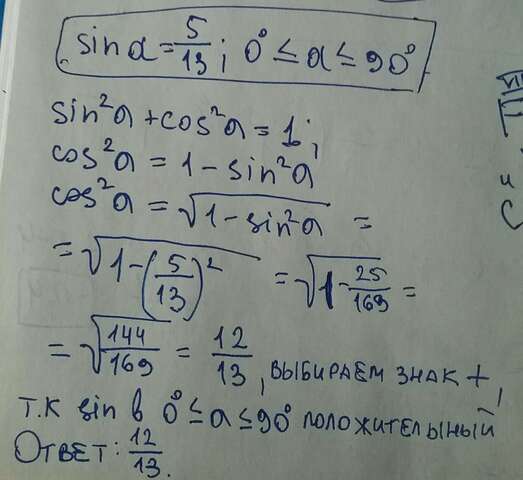 sin a = 5/13; 0° ≤ a ≤ 90°
sin²a + cos²a = 1;
cos²a = 1 - sin²a
cos²a = √(1 - sin²a) =
= √(1 - (5/13)²) = √(1 - 25/169) =
= √(144/169) = 12/13, ВЫБИРАЕМ ЗНАК +,
Т.К sin в 0° ≤ a ≤ 90° ПОЛОЖИТЕЛЬНЫЙ
ОТВЕТ: 12/13.
и
С